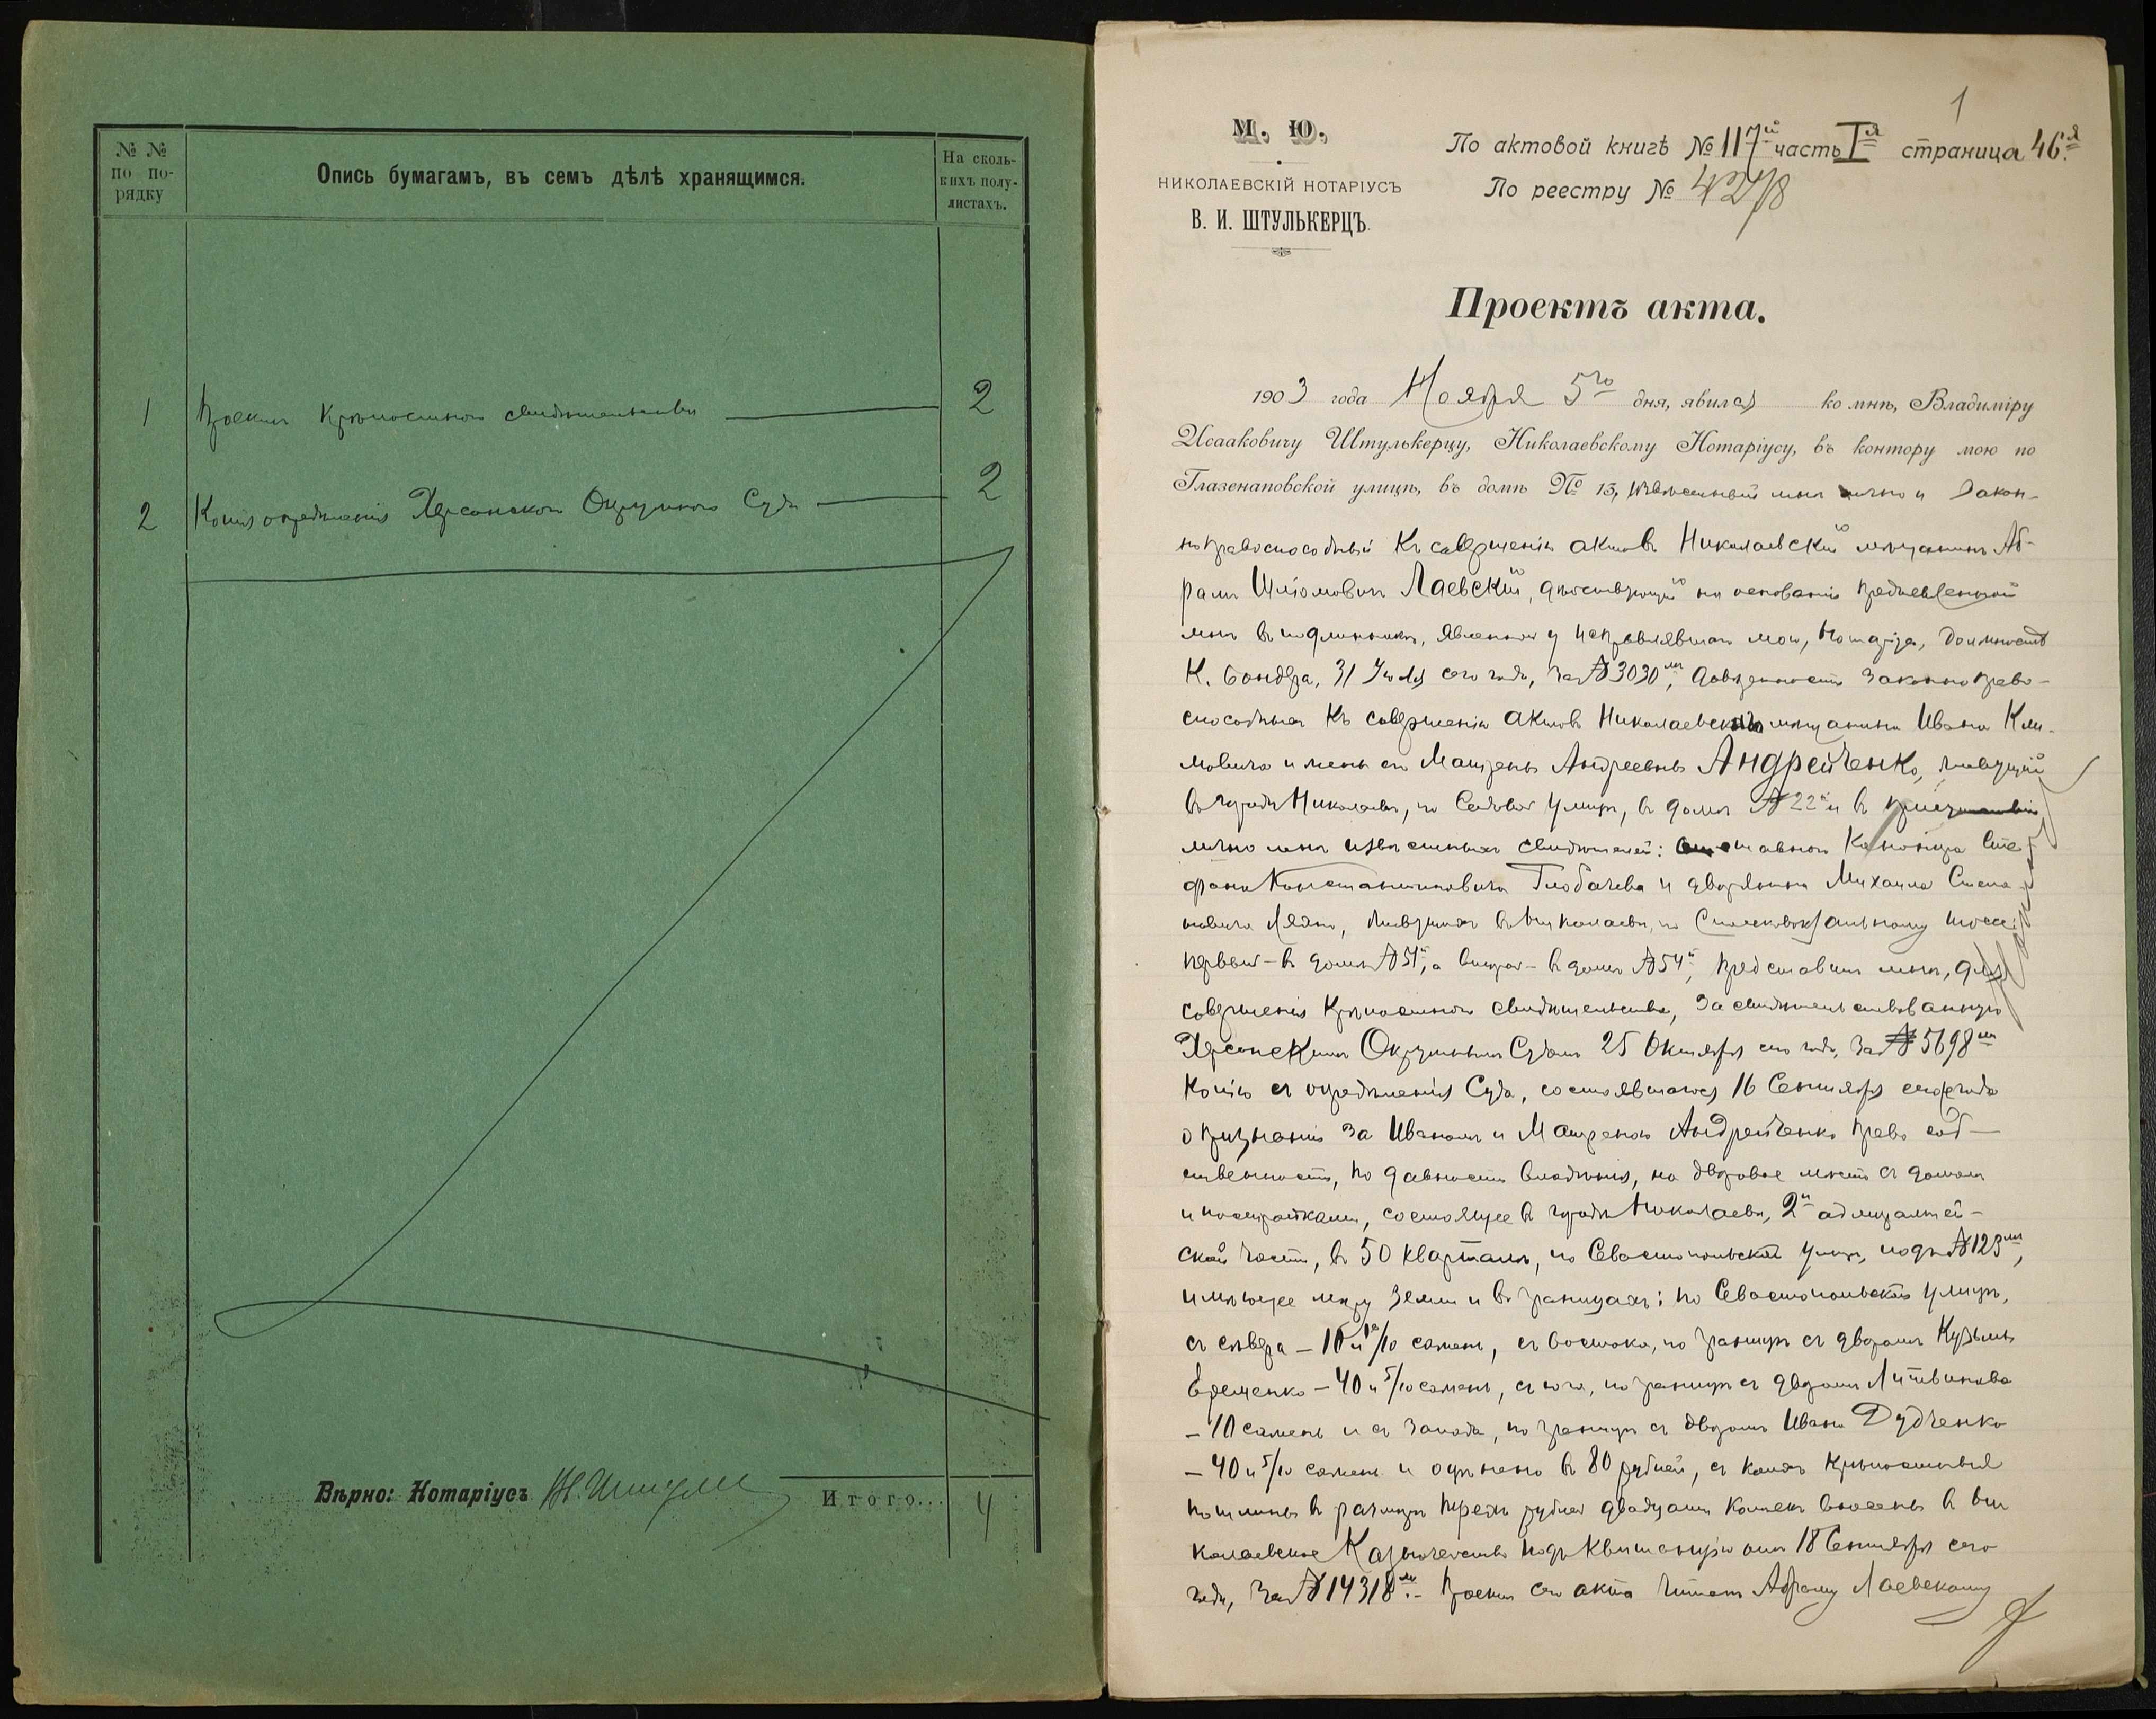 № №
по по-
рядку
Опись бумагамъ, въ семъ дѣлѣ хранящимся.
На сколь-
кихъ полу-
листахъ.
1 Проектъ Крѣпостного свидѣтельства 2
2 Копія опредѣленія Херсонскаго Окружнаго Суда 2
Вѣрно: Нотаріусъ
Итого... 4
1
М. Ю.
НИКОЛАЕВСКІЙ НОТАРІУСЪ
В. И. ШТУЛЬКЕРЦЪ.
По актовой книгѣ № 117й часть Iя страница 46я
По реестру № 4278
Проектъ акта.
1903 года Ноября 5го дня, явился ко мнѣ, Владиміру
Исааковичу Штулькерцу, Николаевскому Нотаріусу, въ контору мою по
Глазенаповской улицѣ, въ домѣ № 13, извѣстный мнѣ лично и закон-
но правоспособный къ совершенію актовъ Николаевскій мѣщанинъ Аб-
рамъ Шліомовичъ Лаевскій, дѣйствующій на основаніи предъявленной
мнѣ въ подлинникѣ, явленной у исправлявшаго мою, Нотаріуса, должность
К. Бондера, 31 Іюля сего года, за № 3030мъ, довѣренности законно право-
способныхъ къ совершенію актовъ Николаевскихъ мѣщанина Ивана Кли-
мовича и жены его Матрены Андреевны Андрейченко, живущій
въ городѣ Николаевѣ, по Садовой улицѣ, въ домѣ № 22й и въ присутствіи
лично мнѣ извѣстныхъ свидѣтелей: отставного Канонира Сте-
фана Константиновича Глобачева и дворянина Михаила Степа-
новича, живущихъ въ Николаевѣ, по Спасковокзальному шоссе:
первый - въ домѣ № 51й, а второй - въ домѣ № 54й, представилъ мнѣ, для
совершенія Крѣпостного свидѣтельства, засвидѣтельствованную
Херсонскимъ Окружнымъ Судомъ 25 Октября сего года, за № 5698мъ
копію съ опредѣленія Суда, состоявшагося 16 Сентября сего года
о признаніи за Иваномъ и Матреною Андрейченко право соб-
ственности, по давности владѣнія, на дворовое мѣсто съ домомъ
и постройками, состоящее въ городѣ Николаевѣ, 2й адмиралтей-
ской части, въ 50 кварталѣ, по Севастопольской улицѣ, подъ № 123мъ,
имѣющее мѣру земли и въ границахъ: по Севастопольской улицѣ,
съ сѣвера - 10 и /10 сажень, съ востока, по границѣ съ дворомъ Кузьмы
Еременко - 40 и 5/10 сажень, съ юга, по границѣ съ дворомъ Литвинова
- 10 сажень и съ запада, по границѣ съ дворомъ Ивана Дудченко
- 40 и 5/10 сажень и оцѣнено въ 80 рублей, съ коихъ крѣпостныя
пошлины въ размѣрѣ трехъ рублей двадцати копѣекъ внесены въ Ни-
колаевское Казначейство подъ квитанцію отъ 18 Сентября сего
года, за № 14318мъ. - Проектъ сего акта читанъ Абраму Лаевскому